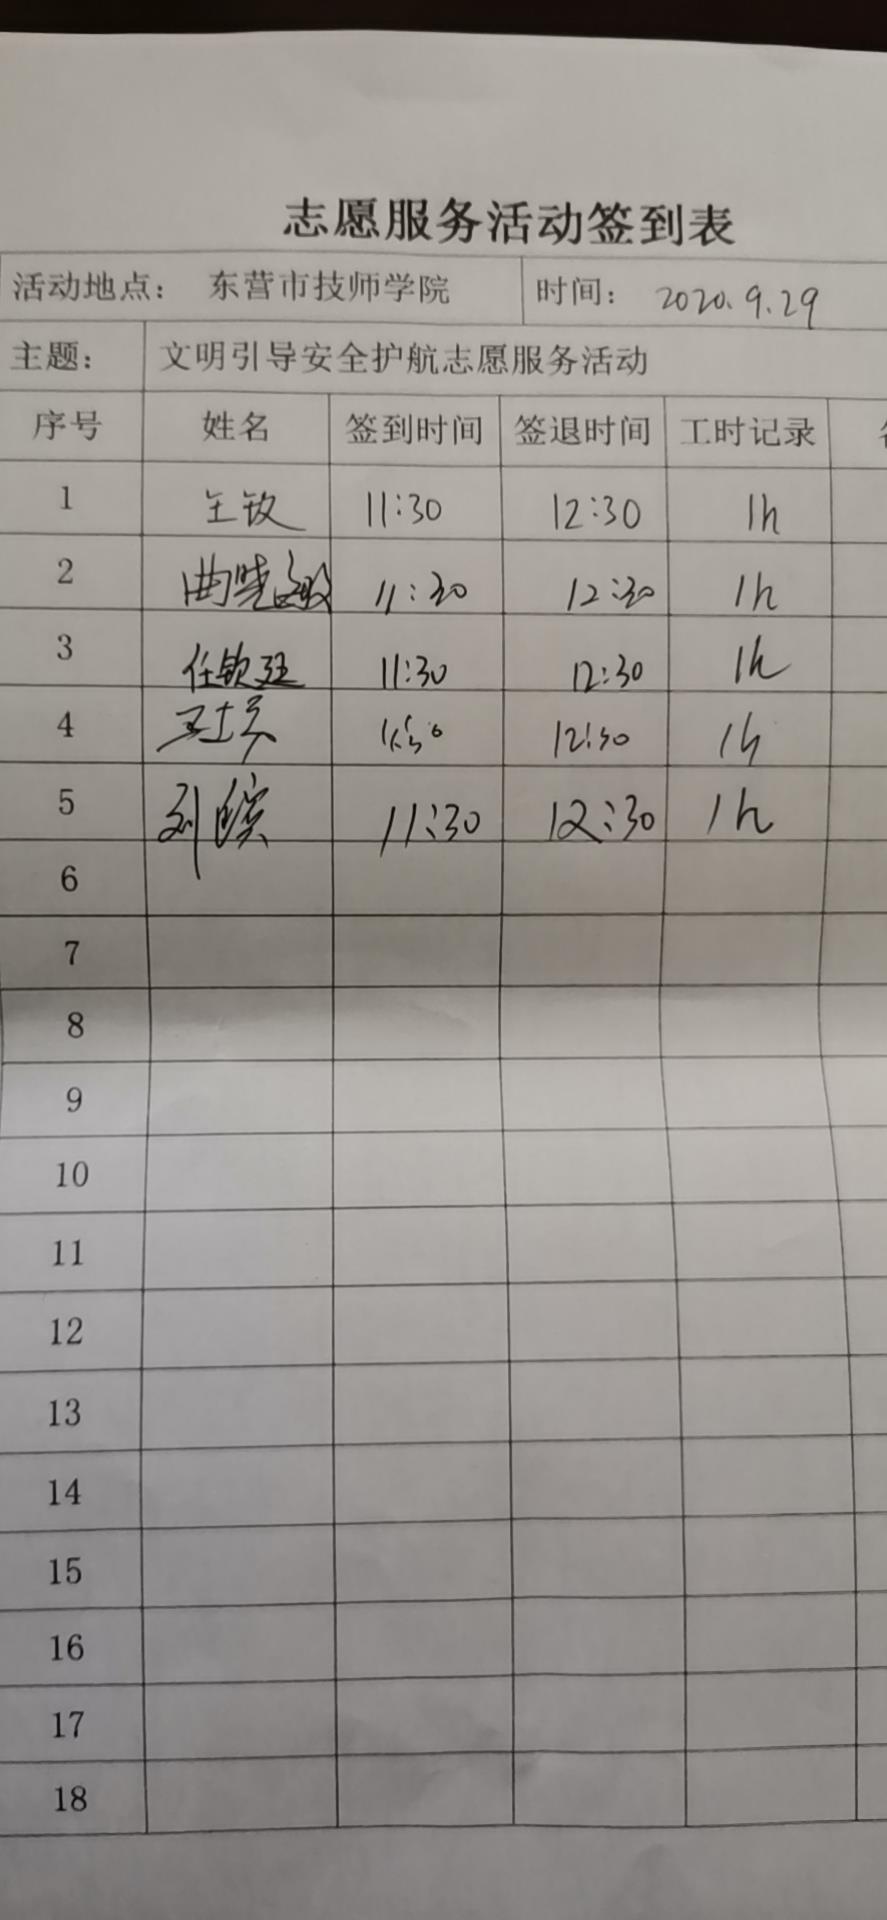 志愿服务活动签到表
活动地点： 东营市技师学院 时间： 2020.9.29
主题： 文明引导安全护航志愿服务活动
序号 姓名 签到时间 签退时间 工时记录
1 王钦 11:30 12:30 1h
2 曲晓敏 11:30 12:30 1h
3 任钦廷 11:30 12:30 1h
4 12:30 1h
5 刘 11:30 12:30 1h
6
7
8
9
10
11
12
13
14
15
16
17
18